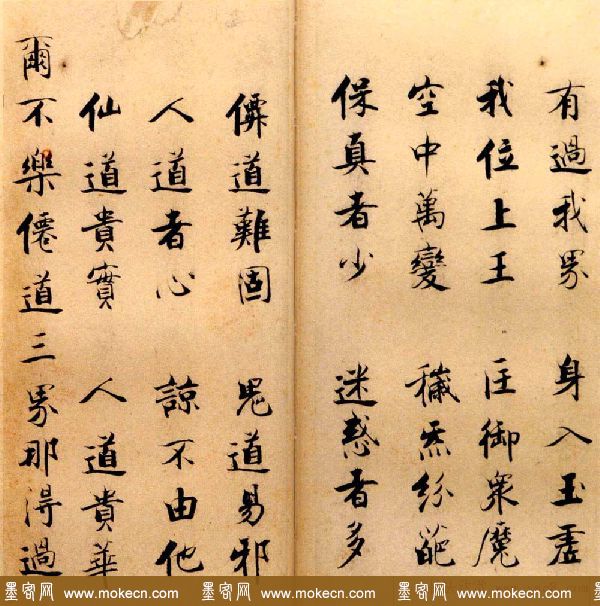 有過我界 身入玉虛
我位上王 匡御衆魔
空中萬變 穢炁紛葩
保真者少 迷惑者多
僊道難固 鬼道易邪
人道者心 諒不由他
仙道貴實 人道貴華
爾不樂僊道三界那得過
墨客网 www.mokecn.com 墨客网 www.mokecn.com 墨客网 www.mokecn.com